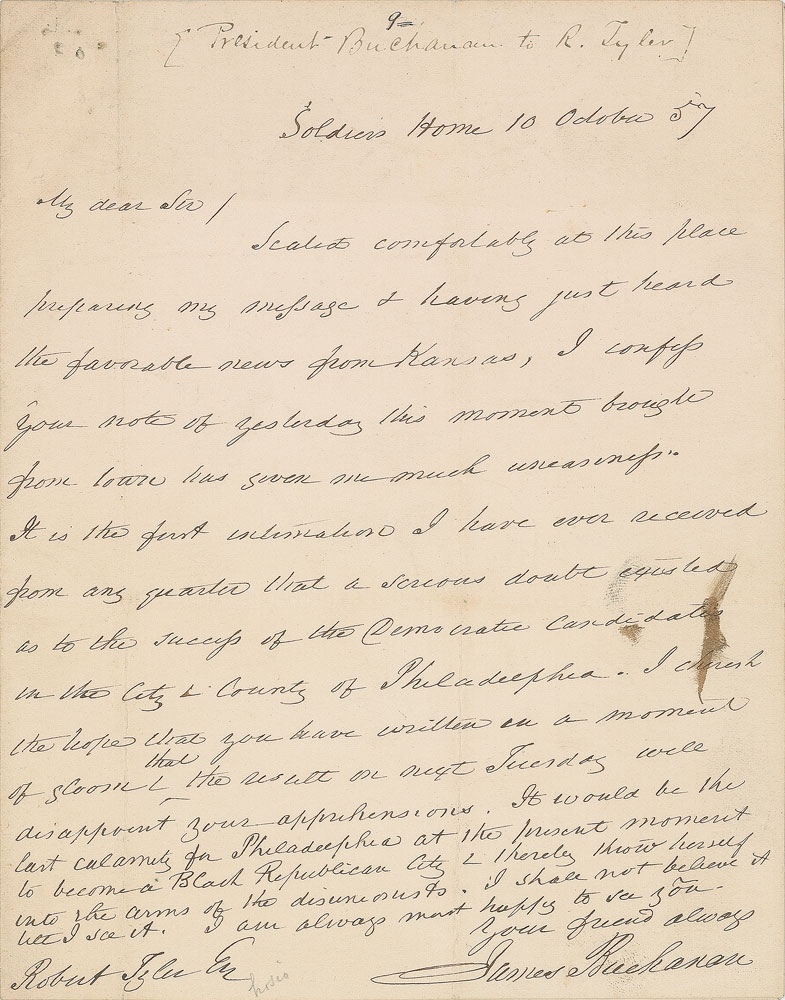 9
[President Buchanan to R. Tyler]
Soldiers Home 10 October 57
My dear Sir/
Seated comfortably at this place
preparing my message & having just heard
the favorable news from Kansas, I confess
your note of yesterday this moment brought
from town has given me much uneasiness.
It is the first intimation I have ever received
from any quarter that a serious doubt existed
as to the success of the Democratic Candidates
in the City & County of Philadelphia. I cherish
the hope that you have written in a moment
of gloom & that the result on next Tuesday will
disappoint your apprehensions. It would be the
last calamity for Philadelphia at the present moment
to become a Black Republican City & thereby throw herself
into the arms of the disunionists. I shall not believe it
till I see it. I am always most happy to see you.
Your friend always
James Buchanan
Robert Tyler Esq